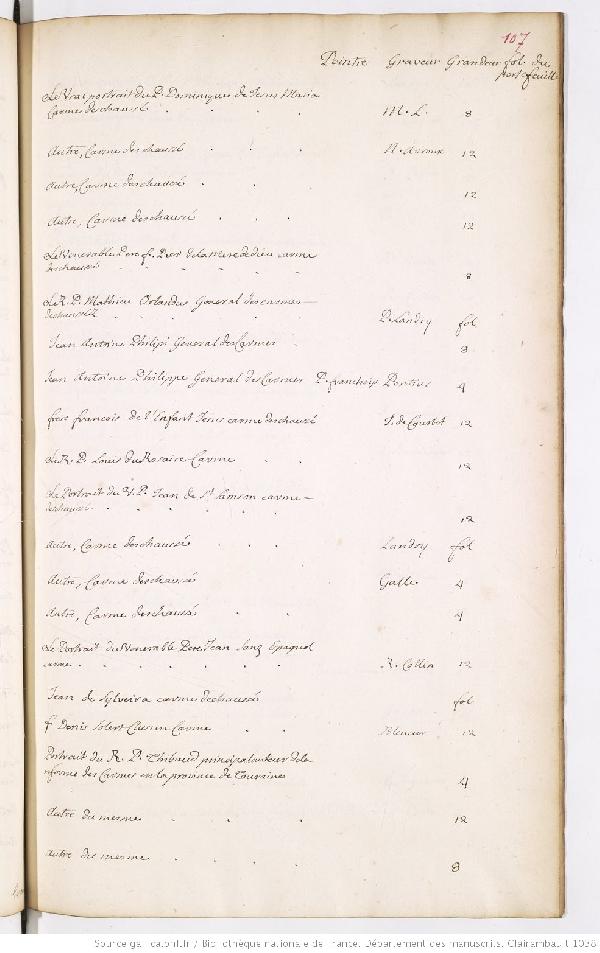 107
Peintre Graveur Grandeur fol. du
portefeuille
Le Vrai portrait du P. Dominique de Jesus Maria
Carme deschaussé M. L. 8
Autre, Carme deschaussé N. Auroux 12
Autre, Carme deschaussé 12
Autre, Carme deschaussé 12
Le Venerable Pere f. Pier de la Mere de dieu carme
deschaussé 8
Le R. P. Mathieu Orlandus General des carmes
deschaussez P. Landry fol
Jean Antoine Philipi General des Carmes 8
Jean Antoine Philippe General des Carmes P. franchoys Pontius 4
frere francois de l'Enfant Jesus carme deschaussé J. de Courbot 12
Le R. P. Louis du Rosaire Carme 12
Le Portrait du V. P. Jean de St. Samson carme
deschaussé 12
Autre, Carme deschaussé Landry fol
Autre, Carme deschaussé Galle 4
Autre, Carme deschaussé 4
Le Portrait du Venerable Pere Jean Sanz Epagnol
carme R. Collin 12
Jean de Sylveira carme deschaussé fol
f Denis Carme 12
Portrait du R. P. Thibauld principal auteur de la
reforme des Carmes en la province de Touraines 4
Autre du mesme 12
Autre du mesme 8
Source gallica.bnf.fr / Bibliothèque nationale de France. Département des manuscrits. Clairambault 1038